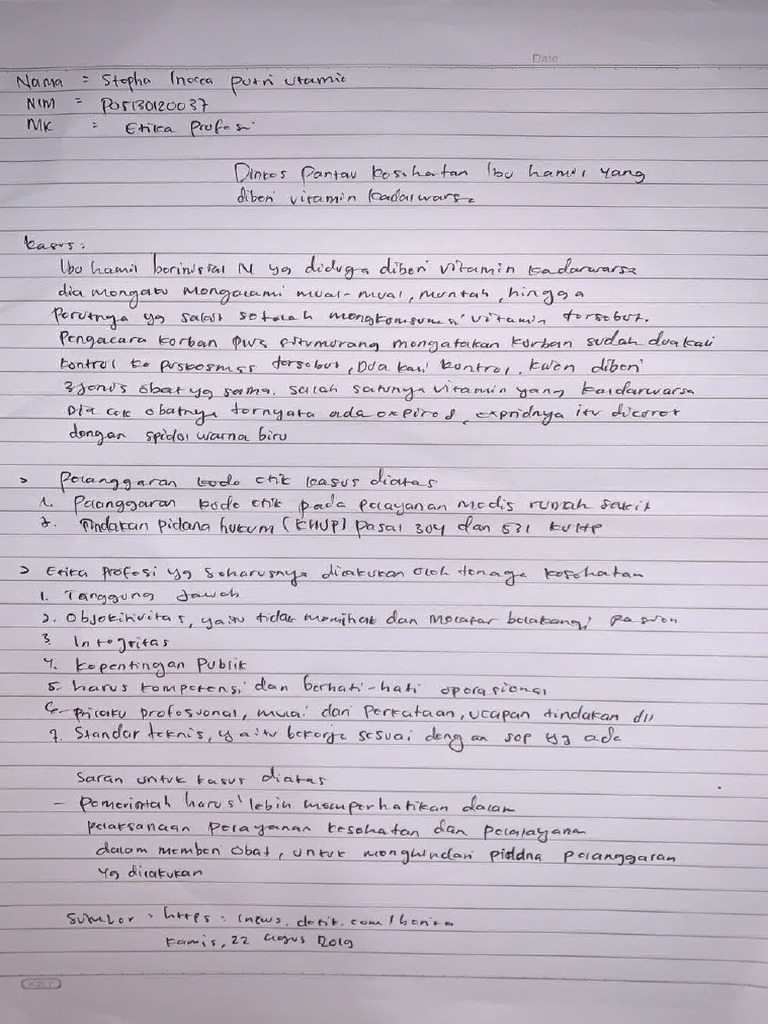 Date
Nama = Stepha Inocca putri utamie
NIM = P05130120037
MK : Etika profesi
Dinkes Pantau kesehatan Ibu hamil yang
diberi vitamin kadalwarsa
kasus :
Ibu hamil berinisial N yg diduga diberi vitamin kadarwarsa
dia mengaku mengalami mual-mual, muntah, hingga
perutnya yg sakit setelah mengkonsumsi vitamin tersebut.
Pengacara korban pius situmorang mengatakan korban sudah dua kali
kontrol ke puskesmas tersebut, Dua kali kontrol, klien diberi
3 jenis obat yg sama. salah satunya vitamin yang kaldarwarsa
Dia cek obatnya ternyata ada expired, expridnya itu dicoret
dengan spidol warna biru
> pelanggaran kode etik kasus diatas
1. Pelanggaran kode etik pada pelayanan medis rumah sakit
2. Tindakan pidana hukum (KHUP) pasal 304 dan 531 KUHP
> Etika profesi yg seharusnya dilakukan oleh tenaga kesehatan
1. Tanggung Jawab
2. Objektivitas, yaitu tidak memihak dan melatar belakangi pasien
3. Integritas
4. kepentingan Publik
5. harus kompetensi dan berhati-hati operasional
6. prilaku profesional, mulai dari perkataan, ucapan tindakan dll
7. Standar teknis, yaitu bekerja sesuai dengan SOP yg ada
Saran untuk kasus diatas
- pemerintah harus lebih memperhatikan dalam
pelaksanaan pelayanan kesehatan dan pelalayana
dalam memberi obat, untuk menghindari pidana pelanggaran
yg dilakukan
Sumber : https : Inews. detik. com / berita
kamis, 22 agus 2019
KIKY